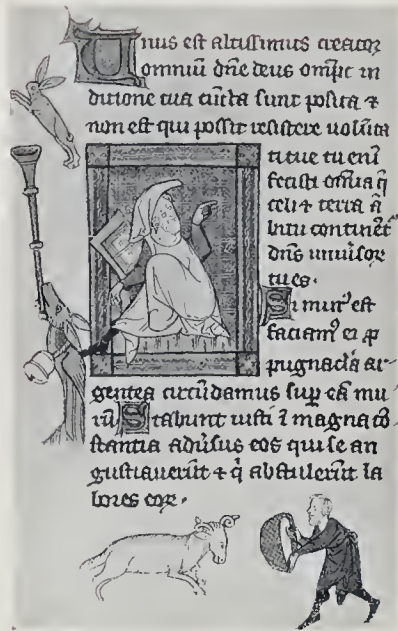 Unus est altissimus creator
omniū dn̄e deus omp̄ic in
ditione tua cūcta sunt posita ⁊
non est qui possit resistere volūta
ti tue tu enī
fecisti om̄ia q̄
celi ⁊ terra ā
bitu continet᷑
dn̄s univ̄sor
tu es.
Si mur᷒ est
faciam᷒ ei ꝓ
pugnac̄la ar
gentea circūdamus suꝑ eā mu
rū Stabunt iusti ī magna cō
stantia adv̄sus eos qui se an
gustiaverūt ⁊ q̄ abstulerūt la
bores eor.